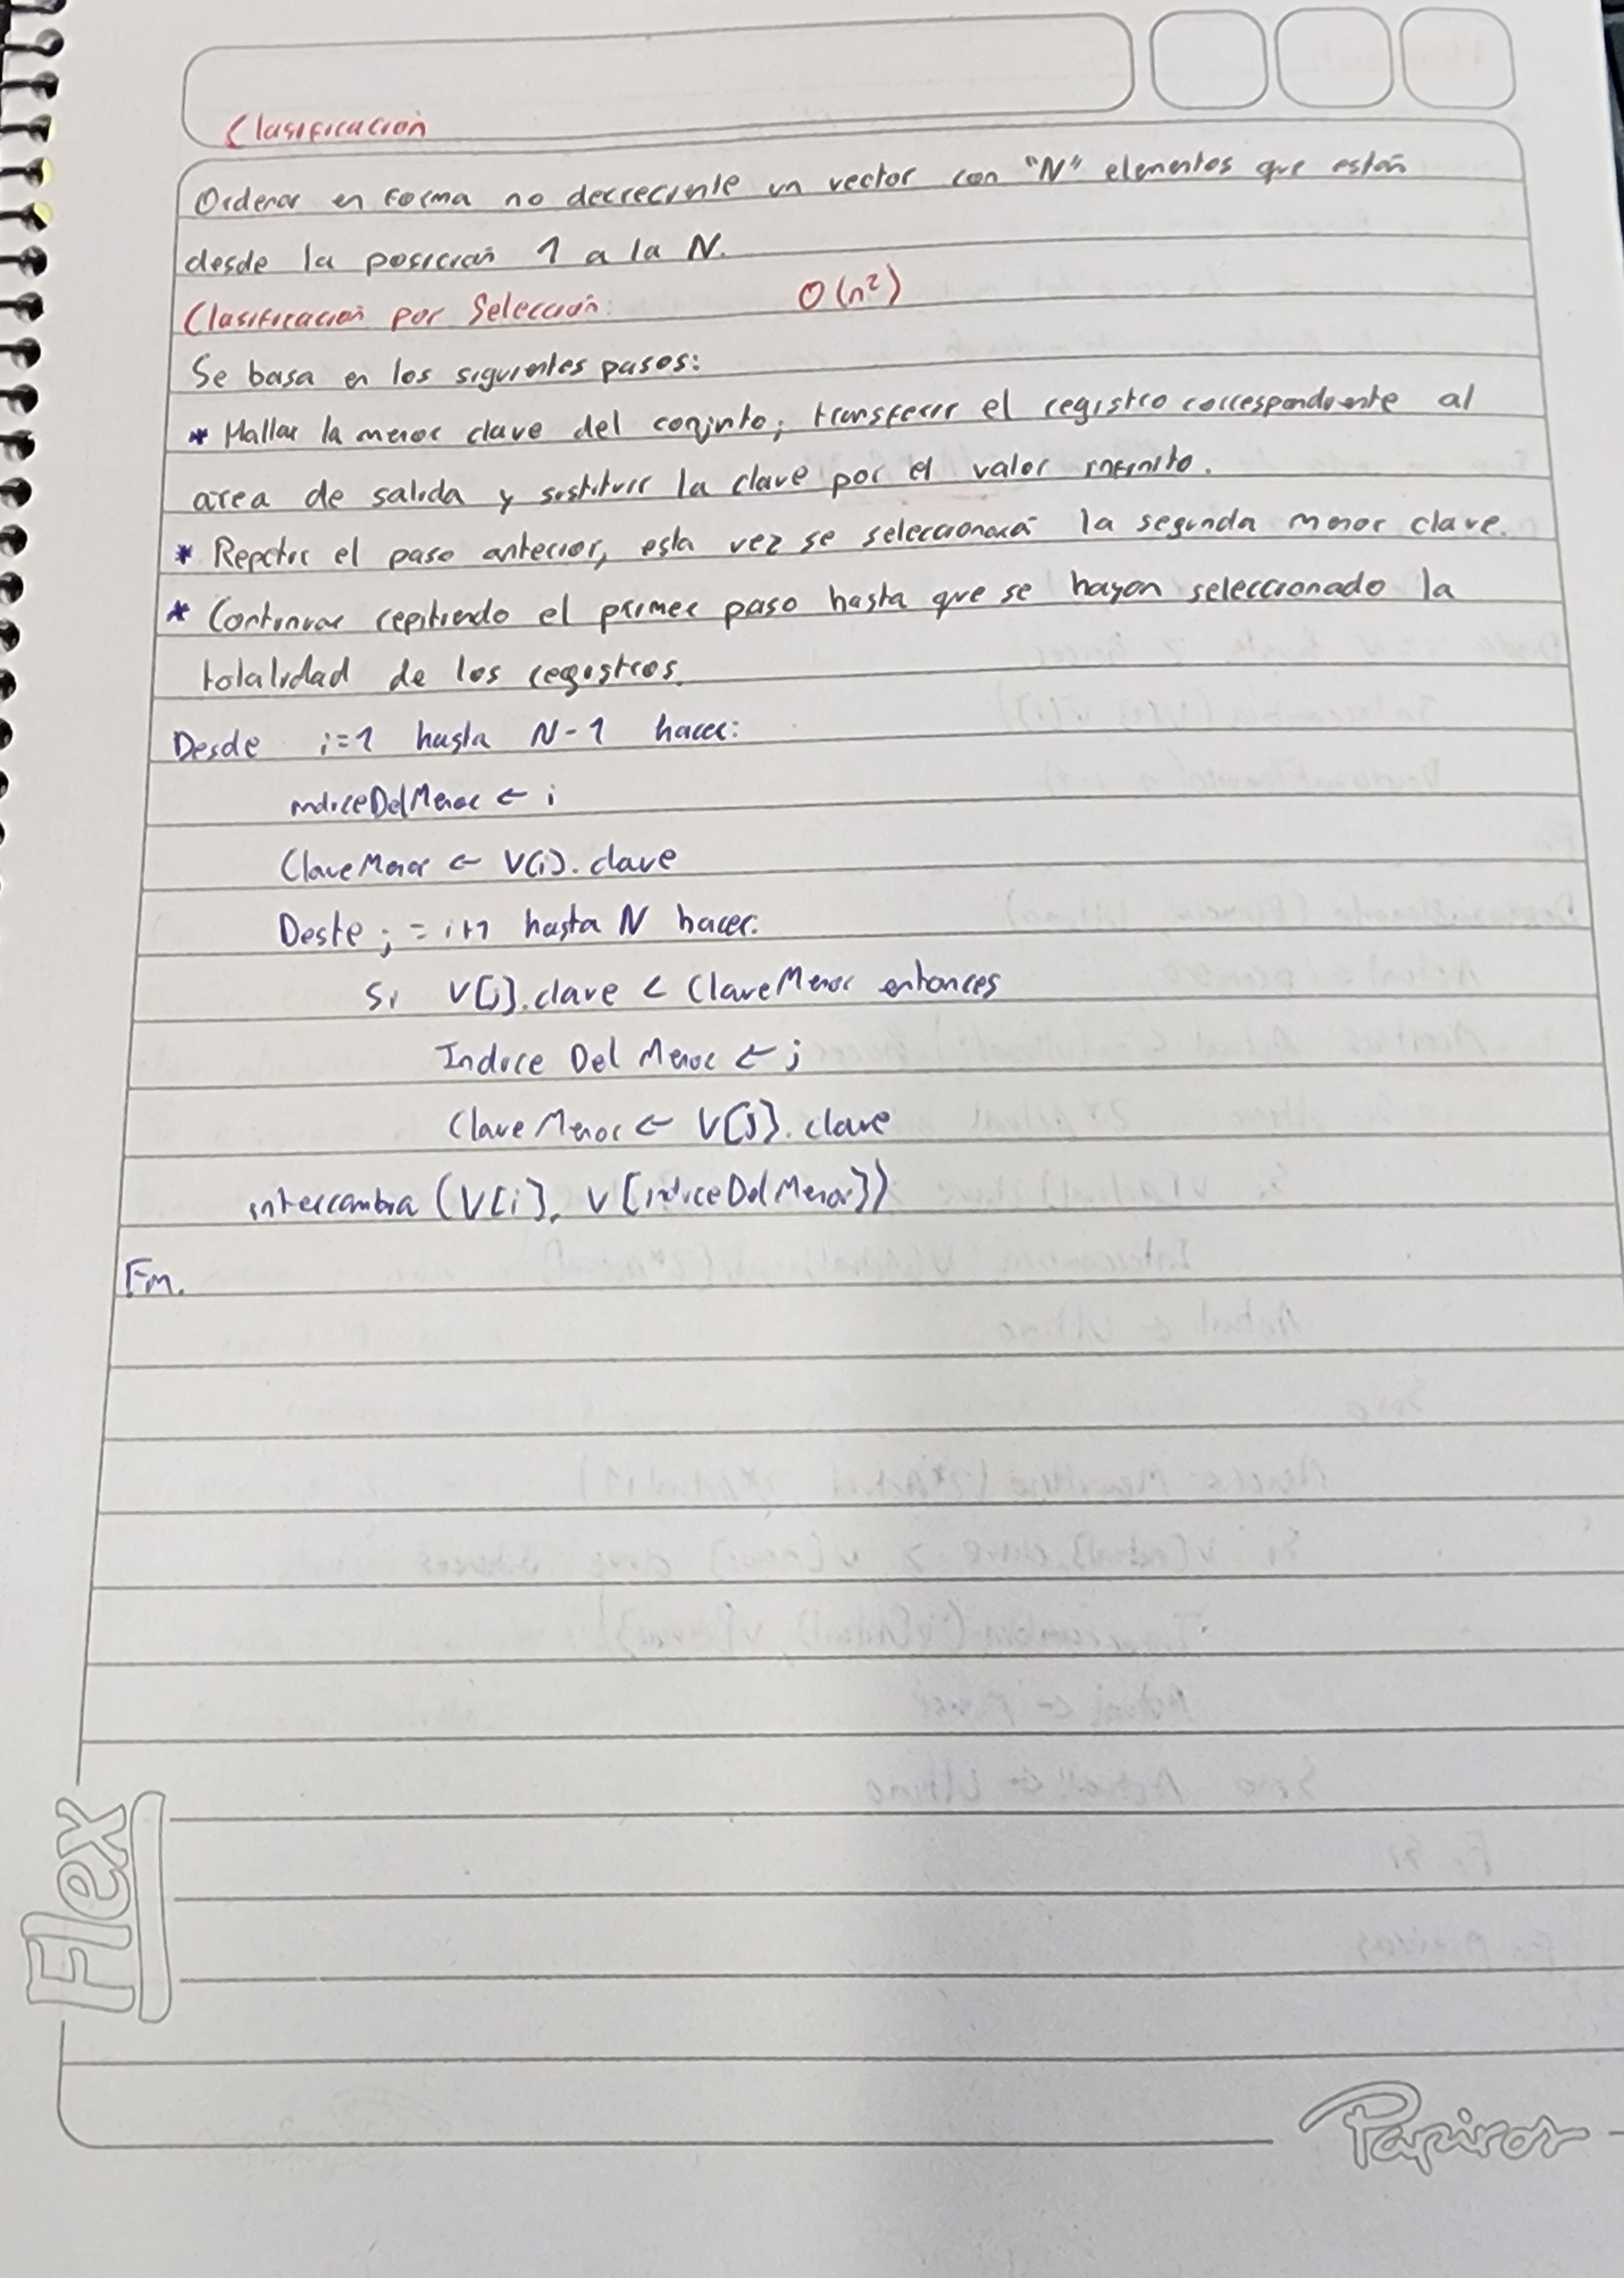 Clasificacion
Ordenar en forma no decreciente un vector con "N" elementos que están
desde la posición 1 a la N.
Clasificación por Selección: O(n²)
Se basa en los siguientes pasos:
* Hallar la menor clave del conjunto, transferir el registro correspondiente al
area de salida y sustituir la clave por el valor infinito.
* Repetir el paso anterior, esta vez se seleccionará la segunda menor clave.
* Continuar repitiendo el primer paso hasta que se hayan seleccionado la
totalidad de los registros.
Desde i=1 hasta N-1 hacer:
indiceDelMenor ← i
ClaveMenor ← V(i).clave
Deste j = i+1 hasta N hacer:
Si V[j].clave < ClaveMenor entonces
Indice Del Menor ← j
Clave Menor ← V[j].clave
intercambia (V[i], V[indiceDelMenor])
Fin.
Flex
Papiros